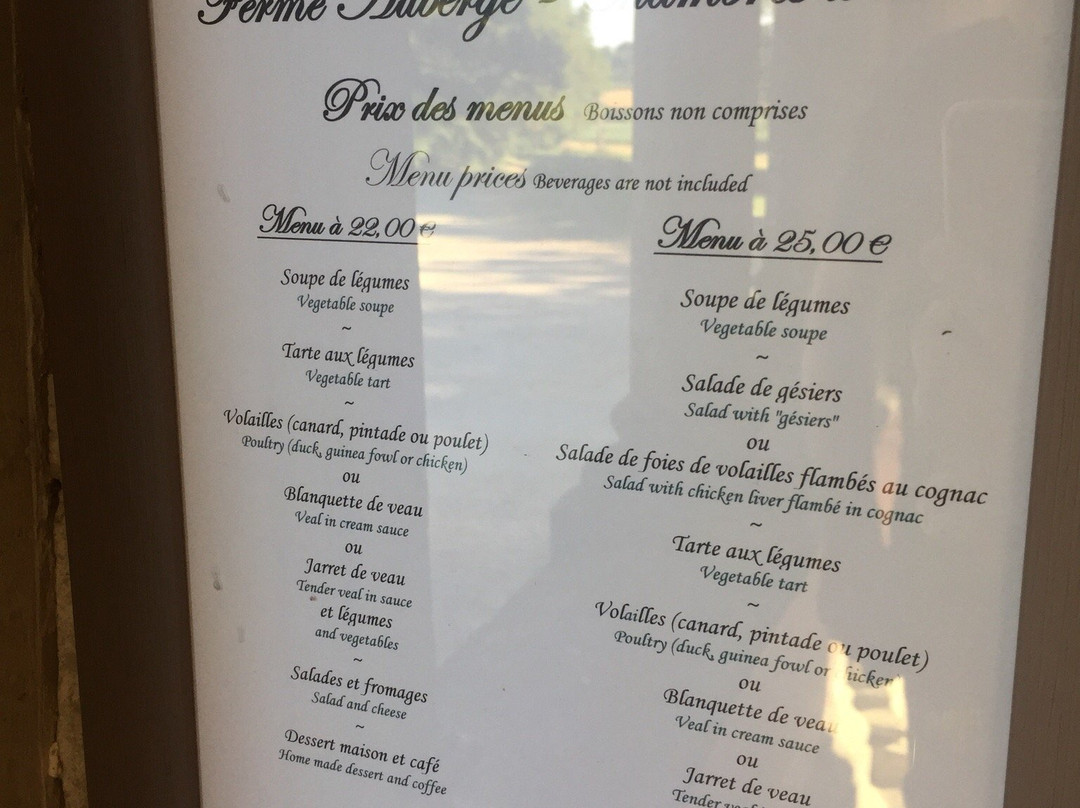 Ferme Auberge -
Prix des menus Boissons non comprises
Menu prices Beverages are not included
Menu à 22,00 €
Soupe de légumes
Vegetable soupe
~
Tarte aux légumes
Vegetable tart
~
Volailles (canard, pintade ou poulet)
Poultry (duck, guinea fowl or chicken)
ou
Blanquette de veau
Veal in cream sauce
ou
Jarret de veau
Tender veal in sauce
et légumes
and vegetables
~
Salades et fromages
Salad and cheese
~
Dessert maison et café
Home made dessert and coffee
Menu à 25,00 €
Soupe de légumes
Vegetable soupe
~
Salade de gésiers
Salad with "gésiers"
ou
Salade de foies de volailles flambés au cognac
Salad with chicken liver flambé in cognac
~
Tarte aux légumes
Vegetable tart
~
Volailles (canard, pintade ou poulet)
Poultry (duck, guinea fowl or chicken)
ou
Blanquette de veau
Veal in cream sauce
ou
Jarret de veau
Tender veal